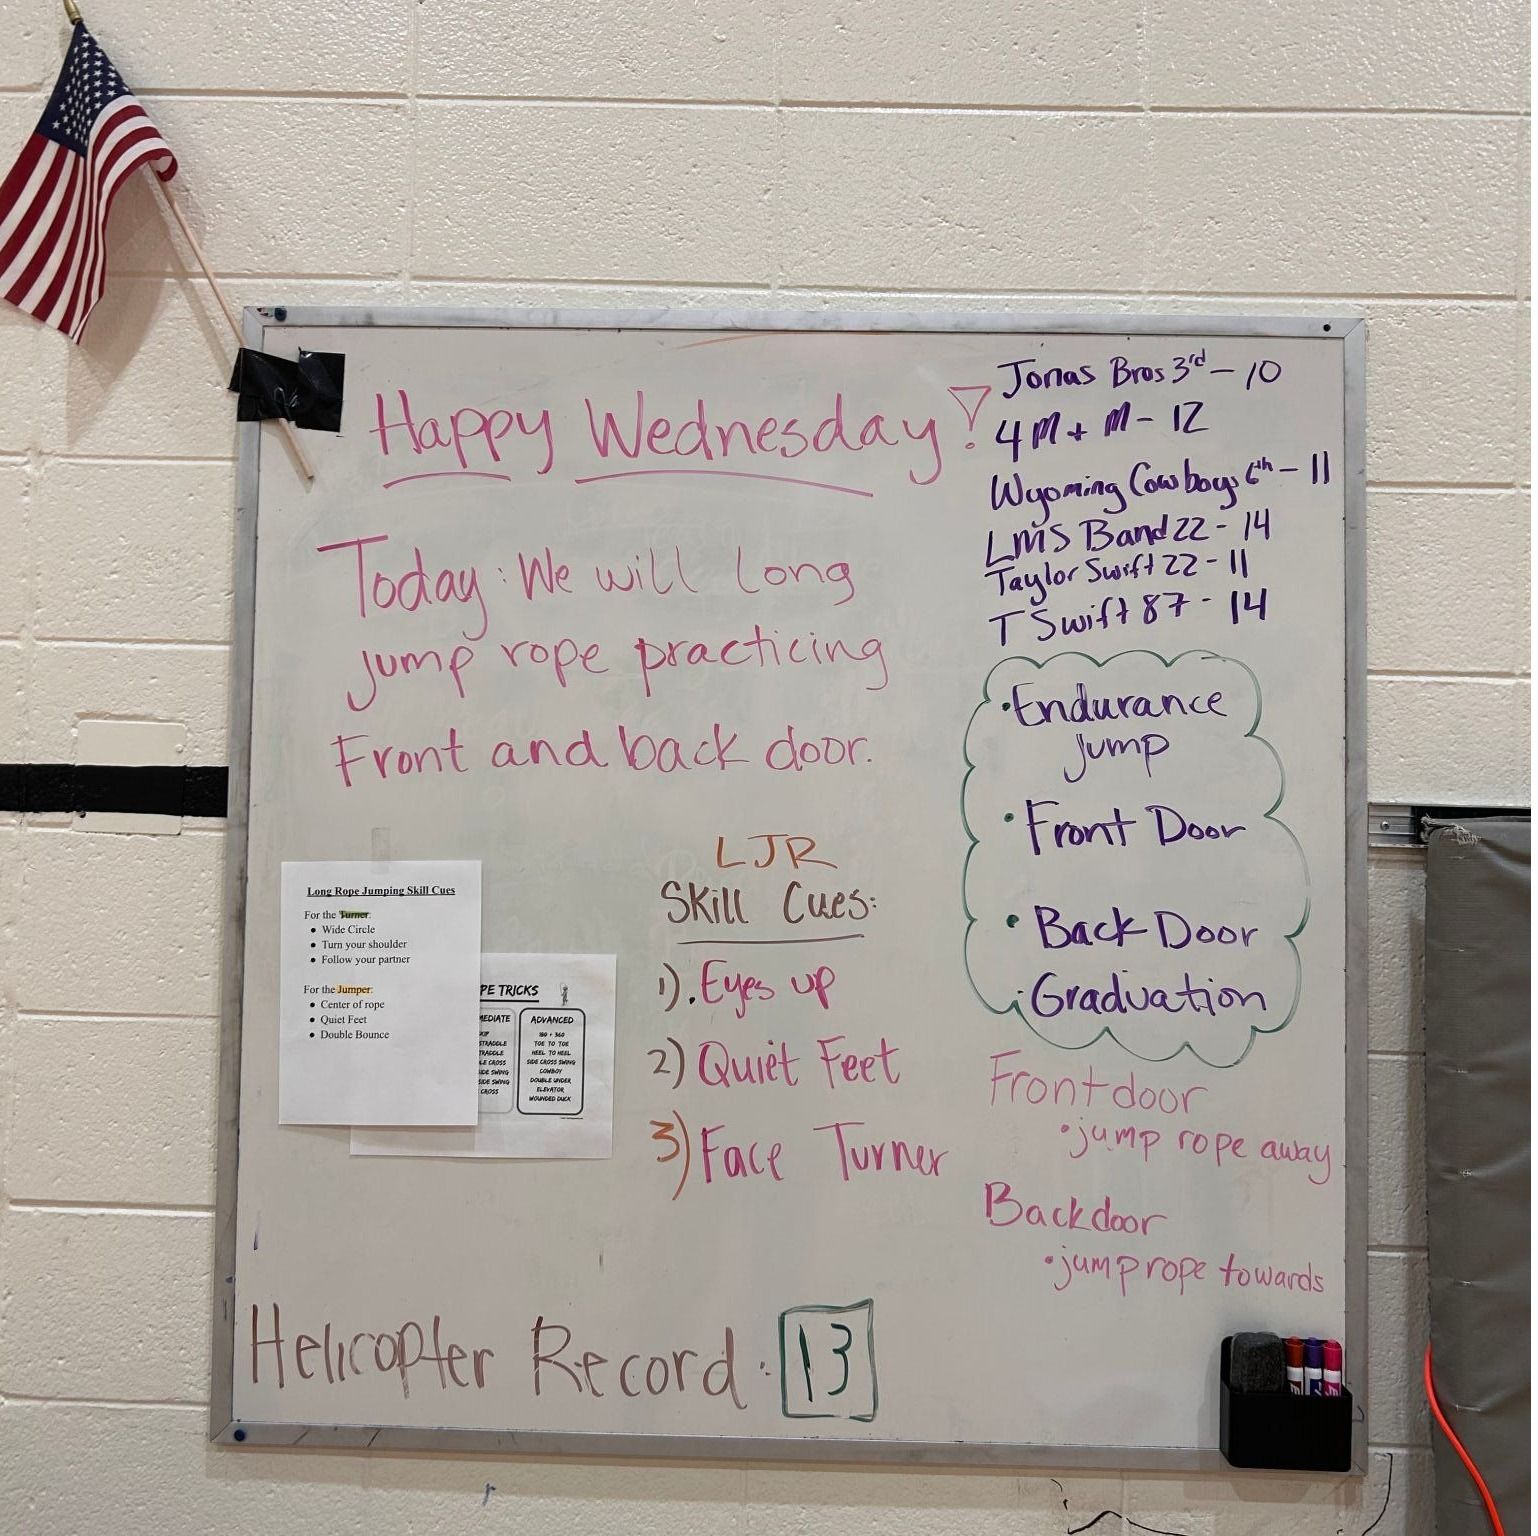 Happy Wednesday!
Today: We will long
jump rope practicing
Front and back door.
Jonas Bros 3rd - 10
4 M + M - 12
Wyoming Cowboys 6th - 11
LMS Band 22 - 14
Taylor Swift 22 - 11
T Swift 87 - 14
• Endurance
jump
• Front Door
• Back Door
• Graduation
Front door
• jump rope away
Back door
• jump rope towards
LJR
Skill Cues:
1). Eyes up
2) Quiet Feet
3) Face Turner
Long Rope Jumping Skill Cues
For the Turner:
• Wide Circle
• Turn your shoulder
• Follow your partner
For the Jumper:
• Center of rope
• Quiet Feet
• Double Bounce
PE TRICKS
MEDIATE
STRADDLE
LE CROSS
IDE SWING
SIDE SWING
CROSS
ADVANCED
180 + 360
TOE TO TOE
HEEL TO HEEL
SIDE CROSS SWING
COWBOY
DOUBLE UNDER
ELEVATOR
WOUNDED DUCK
Helicopter Record: 13